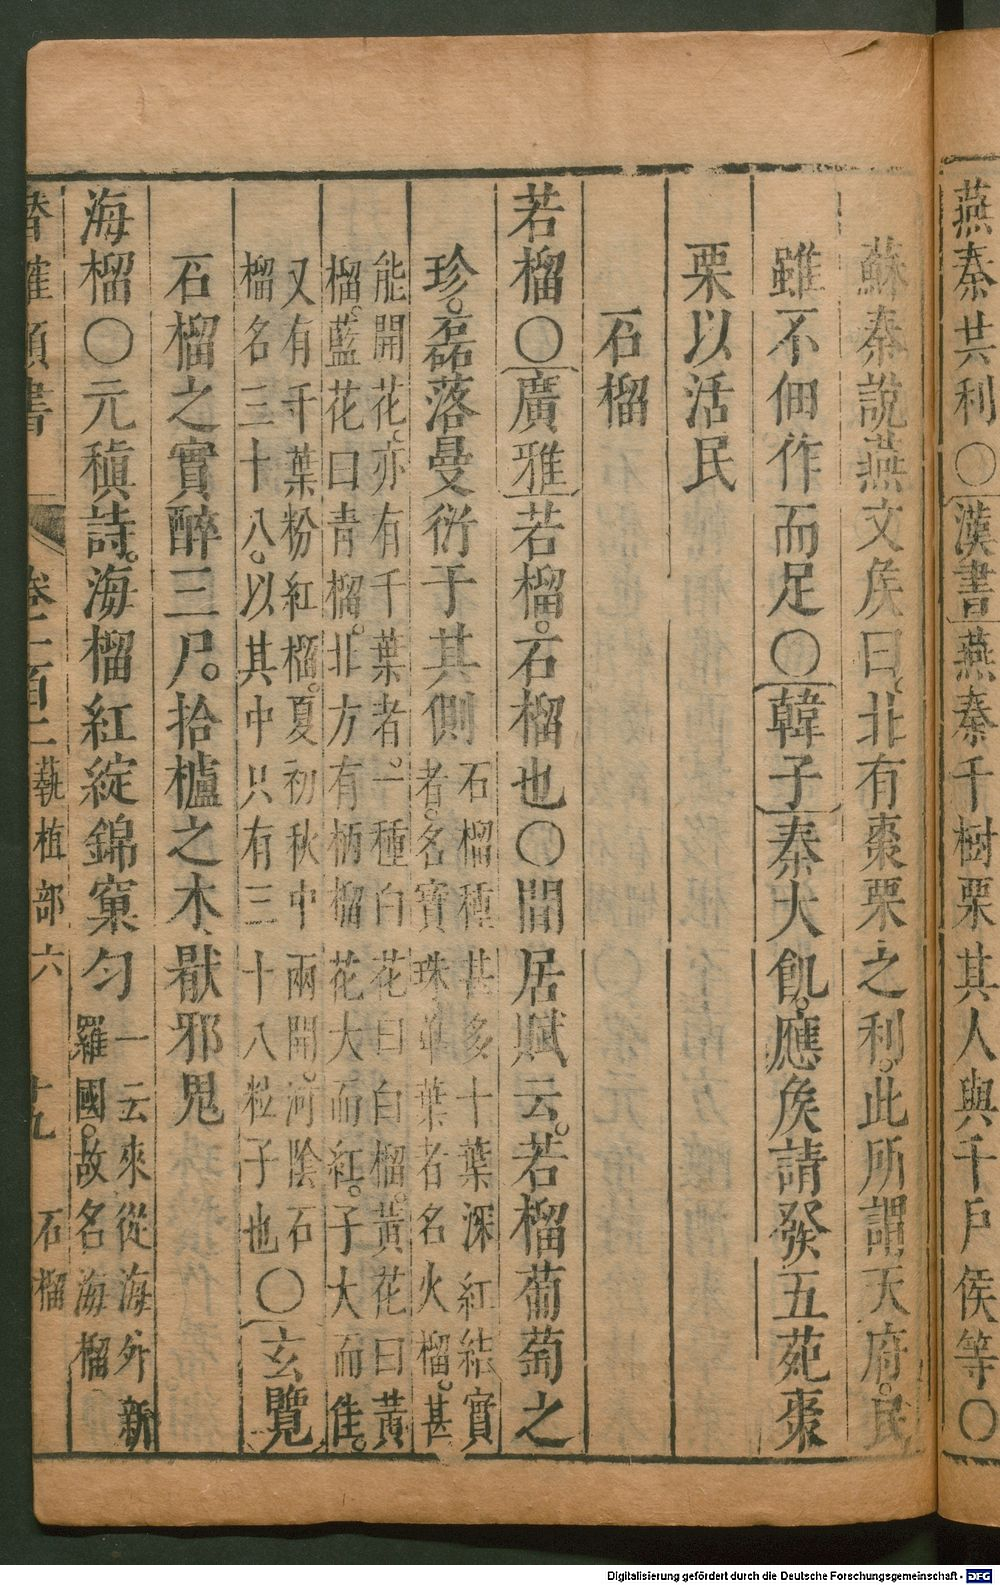 燕秦共利○漢書燕秦千樹栗其人與千戶侯等○
蘇秦說燕文矦曰北有棗栗之利此所謂天府民
雖不佃作而足○韓子秦大飢應矦請發五苑棗
栗以活民
石榴
若榴○廣雅若榴石榴也○閒居賦云若榴葡萄之
珍磊落曼衍于其側石榴種甚多十葉深紅結實
者名寶珠單葉者名火榴甚
能開花亦有千葉者一種白花曰白榴黃花曰黃
榴藍花曰青榴北方有柄榴花大而紅子大而佳
又有千葉粉紅榴夏初秋中兩開河陰石
榴名三十八以其中只有三十八粒子也○玄覽
石榴之實醉三尸拾櫨之木厭邪鬼
海榴○元稹詩海榴紅綻錦窠勻一云來從海外新
羅國故名海榴
卷二百二 蓺植部六 十九 石榴
Digitalisierung gefördert durch die Deutsche Forschungsgemeinschaft - DFG